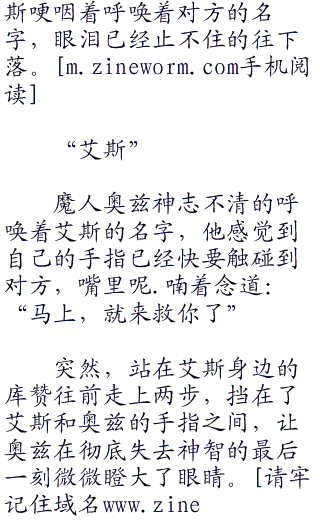 斯哽咽着呼唤着对方的名
字，眼泪已经止不住的往下
落。[m.zineworm.com手机阅
读]
“艾斯”
魔人奥兹神志不清的呼
唤着艾斯的名字，他感觉到
自己的手指已经快要触碰到
对方，嘴里呢.喃着念道：
“马上，就来救你了”
突然，站在艾斯身边的
库赞往前走上两步，挡在了
艾斯和奥兹的手指之间，让
奥兹在彻底失去神智的最后
一刻微微瞪大了眼睛。[请牢
记住域名www.zine